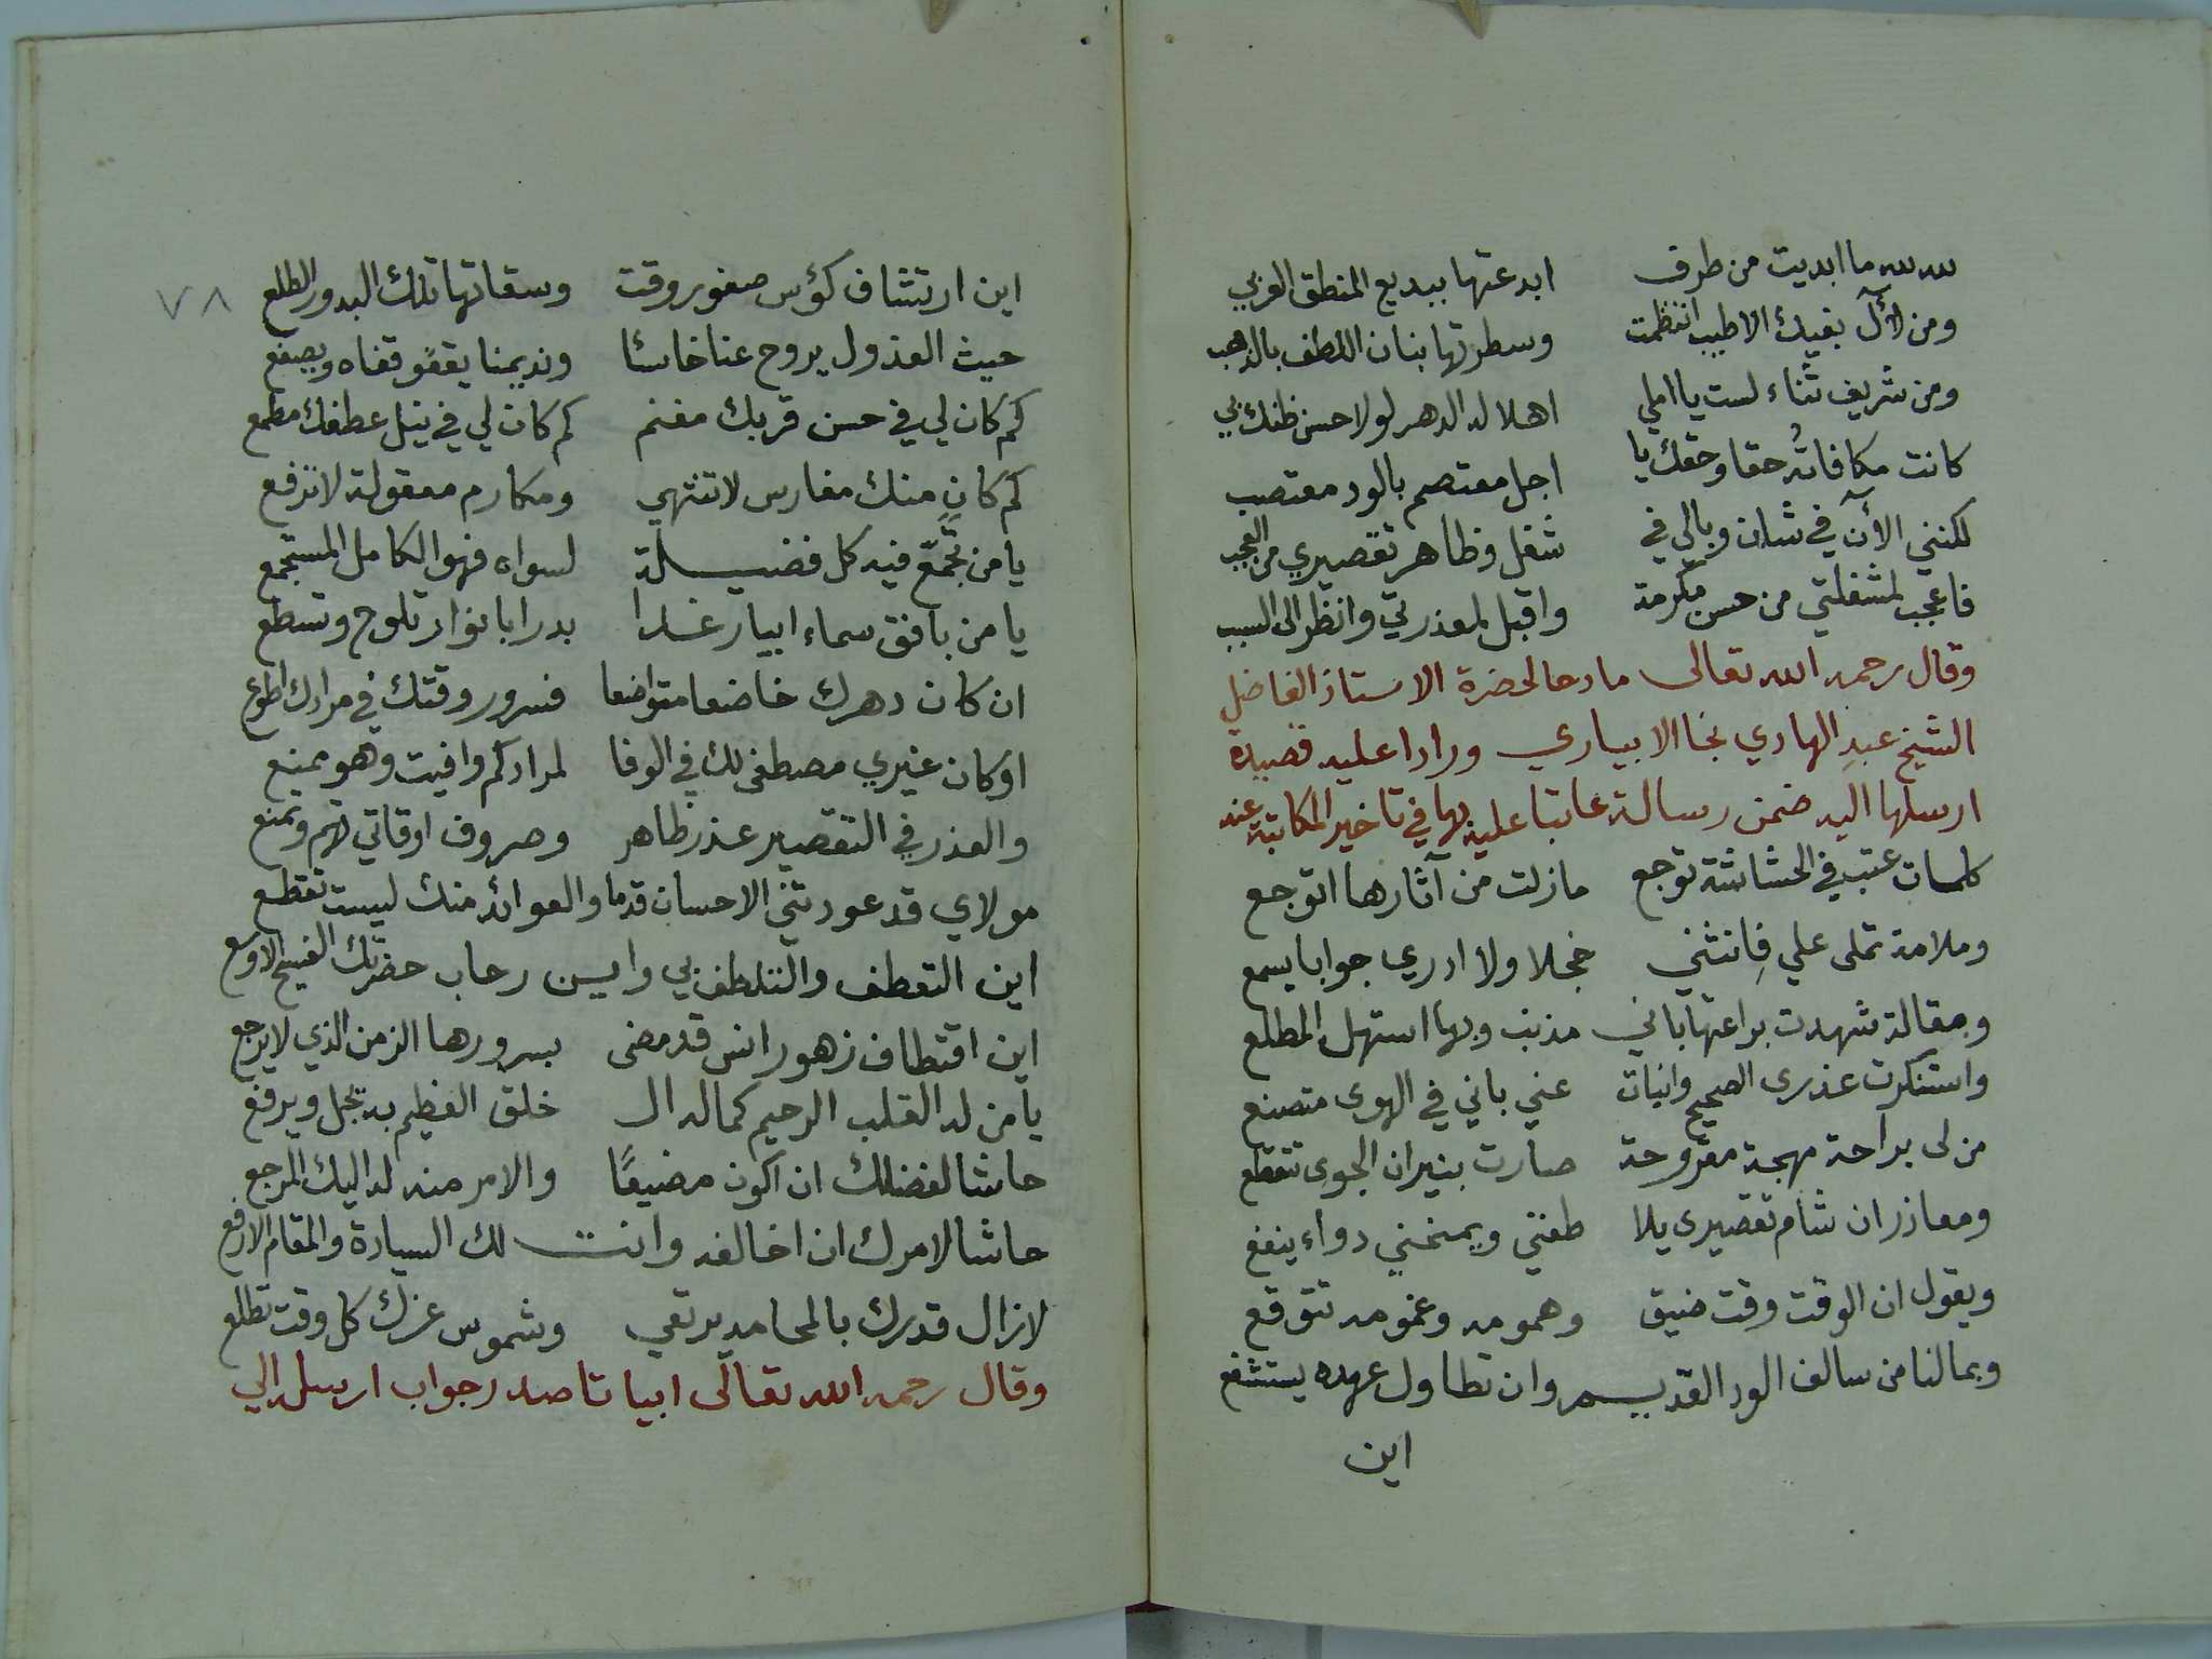 لله لله ما ابديت من طرف ابدعتها ببديع المنطق العربي
ومن لآل بفيك الاطيب انتظمت وسطرتها بنان اللطف بالذهب
ومن شريف ثناء لست يا املي اهلا له الدهر لولا حسن ظنك بي
كانت مكافاته حقا وحقك يا اجل معتصم بالود معتصب
لكنني الآن في شان وبالي في شغل وظاهر تقصيري من العجب
فاعجب لمشغلتي من حسن مكرمة واقبل لمعذرتي وانظر الى السبب
وقال رحمه الله تعالى مادحا لحضرة الاستاذ الفاضل
الشيخ عبد الهادي نجا الابياري ورادا عليه قصيدة
ارسلها اليه ضمن رسالة عاتبا عليه بها في تاخير المكاتبة عنه
كلمات عتب في الحشاشة توجع مازلت من آثارها اتوجع
وملامة تملى علي فانثني خجلا ولا ادري جوابا يسمع
ومقالة شهدت براعتها باني مذنب وبها استهل المطلع
واستنكرت عذرى الصحيح وانبات عني باني في الهوى متصنع
من لى براحة مهجة مقروحة صارت بنيران الجوى تتقطع
ومعاذر ان شام تقصيرى يلا طفني ويمنحني دواء ينفع
ويقول ان الوقت وقت ضيق وهمومه وغمومه تتوقع
وبمالنا من سالف الود القديم وان تطاول عهده يستشفع
اين
٧٨
اين ارتشاف كؤس صفو روقت وسقاتها تلك البدور الطلع
حيث العذول يروح عنا خاسئا ونديمنا يقفو قفاه ويصفع
كم كان لي في حسن قربك مغنم كم كان لي في نيل عطفك مطمع
كم كان منك مغارس لا تنتهي ومكارم معقولة لا تدفع
يا من تجمع فيه كل فضيلة لسواه فهو الكامل المستجمع
يا من بافق سماء ابيار غدا بدرا بانوار تلوح وتسطع
ان كان دهرك خاضعا متواضعا فسرور وقتك في مرادك اطوع
او كان غيري مصطفى لك في الوفا لمرادكم وافيت وهو ممنع
والعذر في التقصير عذر ظاهر وصروف اوقاتي تهم وتمنع
مولاي قد عودتني الاحسان قدما والعوائد منك ليست تقطع
اين التعطف والتلطف بي واين رحاب حضرتك الفسيح الاوسع
اين اقتطاف زهور انس قد مضى بسرورها الزمن الذي لا يرجع
يا من له القلب الرحيم كما له ال خلق العظيم به يجل ويرفع
حاشا لفضلك ان اكون مضيعًا والامر منه له اليك المرجع
حاشا لامرك ان اخالفه وانت لك السيادة والمقام الارفع
لازال قدرك بالمحامد يرتقي وشموس عزك كل وقت تطلع
وقال رحمه الله تعالى ابياتا صدر جواب ارسله الي